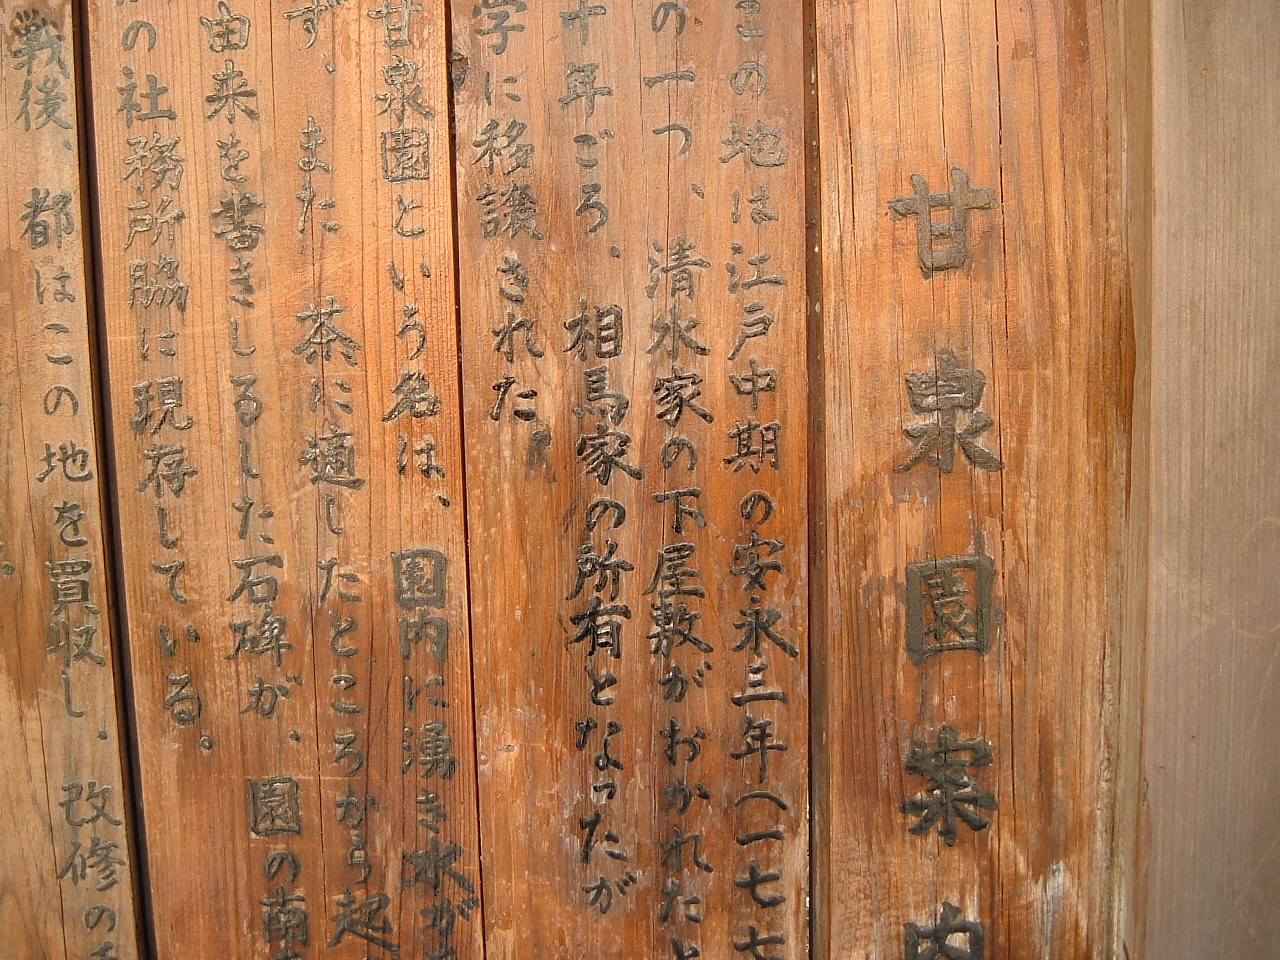 甘泉園案内
この地は江戸中期の安永三年(一七七
の一つ、清水家の下屋敷がおかれたと
十年ごろ、相馬家の所有となったが
学に移譲された
甘泉園という名は、園内に湧き水が
ず、また茶に適したところから起
由来を書きしるした石碑が、園の南
の社務所脇に現存している。
戦後、都はこの地を買収し、改修の